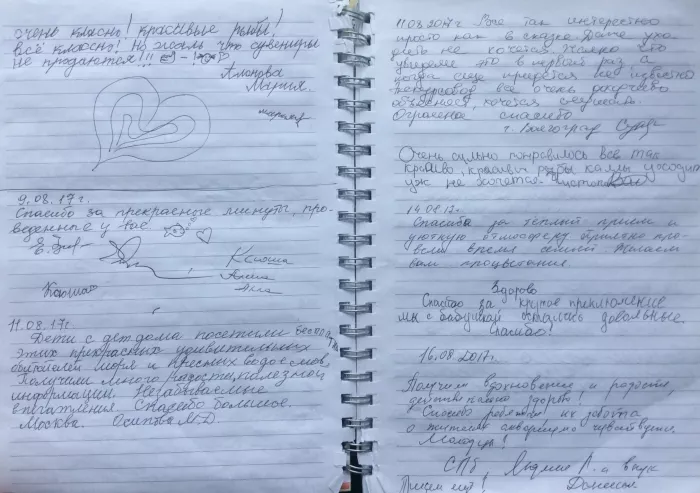 очень классно! красивые рыбы!
всё классно! Но жаль что сувениры
не продаются!!!
Мария.
9.08.17г.
Спасибо за прекрасные минуты, про-
веденные у Вас
Ксюша
Анна
Ксюша
11.08.17г.
Дети с дет дома посетили
этих прекрасных удивительных
обитателей моря и пресных водоемов.
Получили много радости, полезной
информации. Незабываемые
впечатления. Спасибо большое.
Москва. Осипова М.Д.
11.08.2017г Все так интересно
просто как в сказке. Даже ухо
дить не хочется. Жалко что
увидели это в первый раз а
когда еще придется не известно
экскурсовод все очень
объясняет, хочется слушать.
Огромное спасибо
г. Волгоград
Очень сильно понравилось все так
красиво, красивые рыбы
уже не хочется.
14.08.17г.
Спасибо за тёплый приём и
уютную атмосферу. Приятно про-
вели время семьёй. Желаем
вам процветания
Здорово
Спасибо за крутое приключение
мы с бабушкой остались довольные.
Спасибо!
16.08.2017г.
Получили вдохновение и радость
действительно здорово!
Спасибо ребятам! их работа
о жителях аквариума чувствуется.
Молодцы!
СПб, Л. и внук